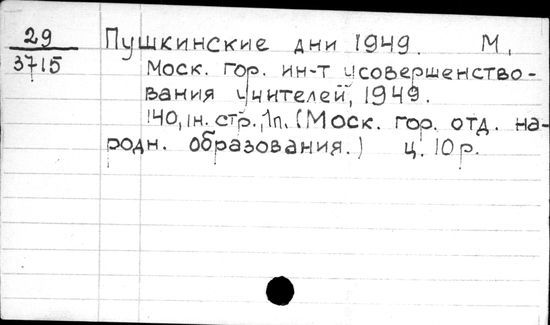 29 Пушкинские дни 1949. М,
3715 Моск. гор. ин-т усовершенство-
вания учителей, 1949.
140, 1н. стр., 1п. (Моск. гор. отд. на-
родн. образования.) ц. 10 р.